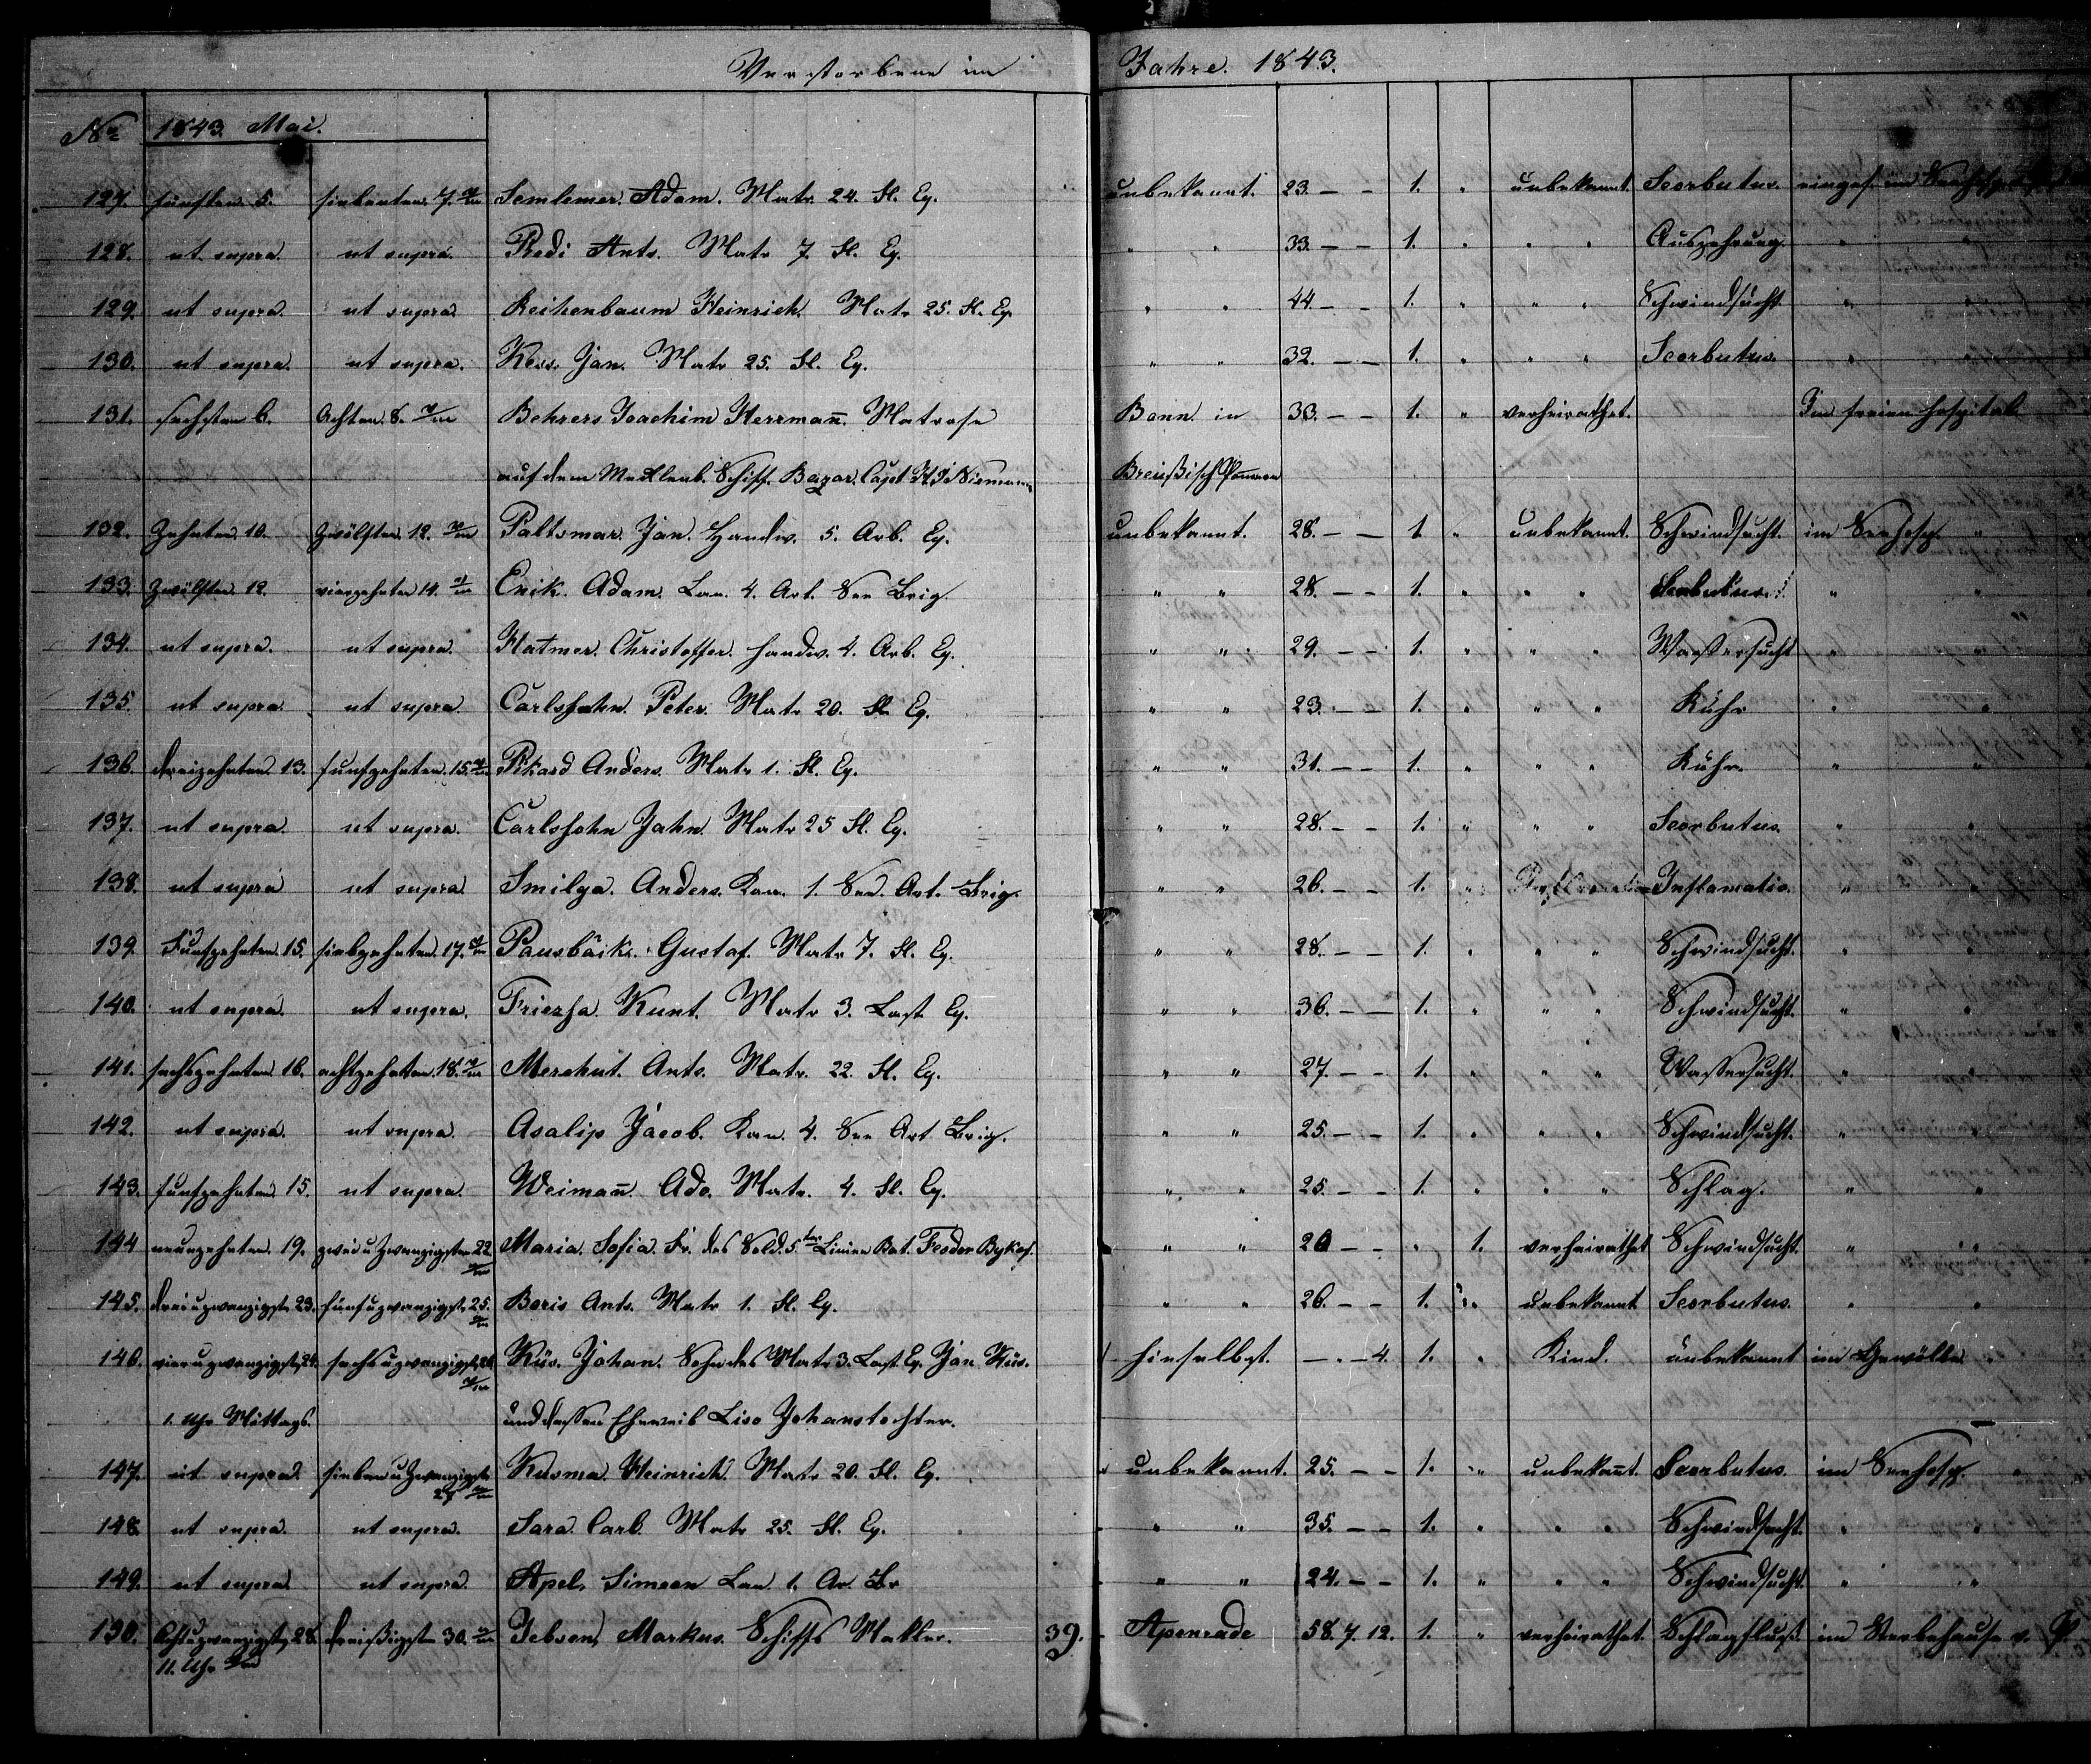 Verstorbene im Jahre 1843.
No 1843. Mai.
127. fünften 5. siebenten 7. Semlemer Adam. Matr 24. Fl. Eq. unbekannt. 23. – – 1. " unbekannt. Scorbutus. eingef. im Seehosp.
128. ut supra. ut supra. Redi Ants. Matr 7. Fl. Eq. " " 33. – – 1. " " " Auszehrung. " "
129. ut supra. ut supra. Reihenbaum Heinrich. Matr 25. Fl. Eq. " " 44. – – 1. " " " Schwindsucht " "
130. ut supra. ut supra. Kess. Jan. Matr 25. Fl. Eq. " " 32. – – 1. " " " Scorbutus. " "
131. sechsten 6. Achten 8. Behrers Joachim Herrmañ. Matrose Bonn in 33. – – 1. " verheirathet. Im freien Hospital
auf dem Mecklenb. Schiff. Bazar. Capt H. J. Niemann Breußisch Pom̃ern
132. Zehnten 10. Zwölften 12. Paltsmar. Jan. Handw. 5. Arb. Eq. unbekannt. 28. – – 1. " unbekannt. Schwindsucht. im Seehosp. "
133. Zwölften 12. vierzehnten 14. Erik. Adam. Kan. 4. Art. See Brig. " " 28. – – 1. " " " Scorbutus. " "
134. ut supra. ut supra. Hatmer. Christoffer. Handw. 4. Arb. Eq. " " 29. – – 1. " " " Wassersucht " "
135. ut supra. ut supra. Carlssohn. Peter. Matr 20. Fl. Eq. " " 23. – – 1. " " " Ruhr " "
136. dreizehnten 13. funfzehnten 15. Pikard Anders. Matr 1. Fl. Eq. " " 31. – – 1. " " " Ruhr. " "
137. ut supra. ut supra. Carlssohn Jahn. Matr 25 Fl. Eq. " " 28. – – 1. " " " Scorbutus. " "
138. ut supra ut supra. Smilga. Anders. Kan. 1. See. Art. Brig. " " 26. – – 1. " Inflamatio. " "
139. Funfzehnten 15. siebzehnten 17. Pausbäik. Gustaf. Matr 7. Fl. Eq. " " 28. – – 1. " " " Schwindsucht. " "
140. ut supra. ut supra. Kunt. Matr 3. Last Eq. " " 36. – – 1. " " " Schwindsucht. " "
141. sechszehnten 16. achtzehnten 18. Merchut. Ants. Matr. 22. Fl. Eq. " " 27. – – 1. " " " Wassersucht. " "
142. ut supra. ut supra. Asalip Jacob. Kan. 4. See Art Brig. " " 25. – – 1. " " " Schwindsucht. " "
143. funfzehnten 15. ut supra. Weimañ. Ado. Matr. 4. Fl. Eq. " " 25. – – 1. " " " Schlag. " "
144 neunzehnten 19. zwei u zwanzigsten 22 Maria. Sofia. Fr. des Sold. 5ter Linien Bat. Feodor Bykof. " " 20 – – " 1. verheirathet Schwindsucht. " "
145. drei u zwanzigst. 23. funf u zwanzigst. 25. Boris Ants. Matr 1. Fl. Eq. " " 26. – – 1. " unbekannt Scorbutus. " "
146. vier u zwanzigst. 24. sechs u zwanzigst. 26. Küs. Johan. Sohn des Matr 3. Last Eq. Jan Küs. hieselbst. – – 4. 1. " Kind. unbekannt im Gewölbe.
1. Uhr Mittags. und dessen Eheweib Liso Johanstochter.
147. ut supra. sieben u zwanzigst. 27 Kusma Heinrich. Matr 20. Fl. Eq. unbekannt. 25. – – 1. " unbekañt. Scorbutus. im Seehosp. "
148. ut supra. ut supra. Sara. Carl. Matr 25. Fl. Eq. " " 35. – – 1. " " " Schwindsucht. " "
149. ut supra. ut supra. Apel. Simeon Kan 1. Ar. Br " " 24. – – 1. " " " Schwindsucht. " "
150. Acht u zwanzigst. 28. dreißigsten 30. Jebsen, Markus. Schiffs Makler. 39. Apenrade 58. 7. 12. 1. " verheirathet. Schlagfluß im Sterbehause v. P.
11. Uhr